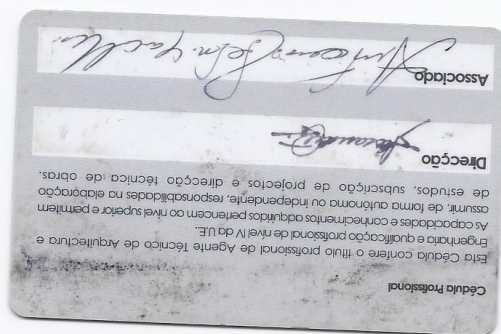 Cédula Profissional
Esta Cédula confere o título profissional de Agente Técnico de Arquitectura e
Engenharia e qualificação profissional de nível IV da U.E.
As capacidades e conhecimentos adquiridos pertencem ao nível superior e permitem
assumir, de forma autónoma ou independente, responsabilidades na elaboração
de estudos, subscrição de projectos e direcção técnica de obras.
Direcção
Associado